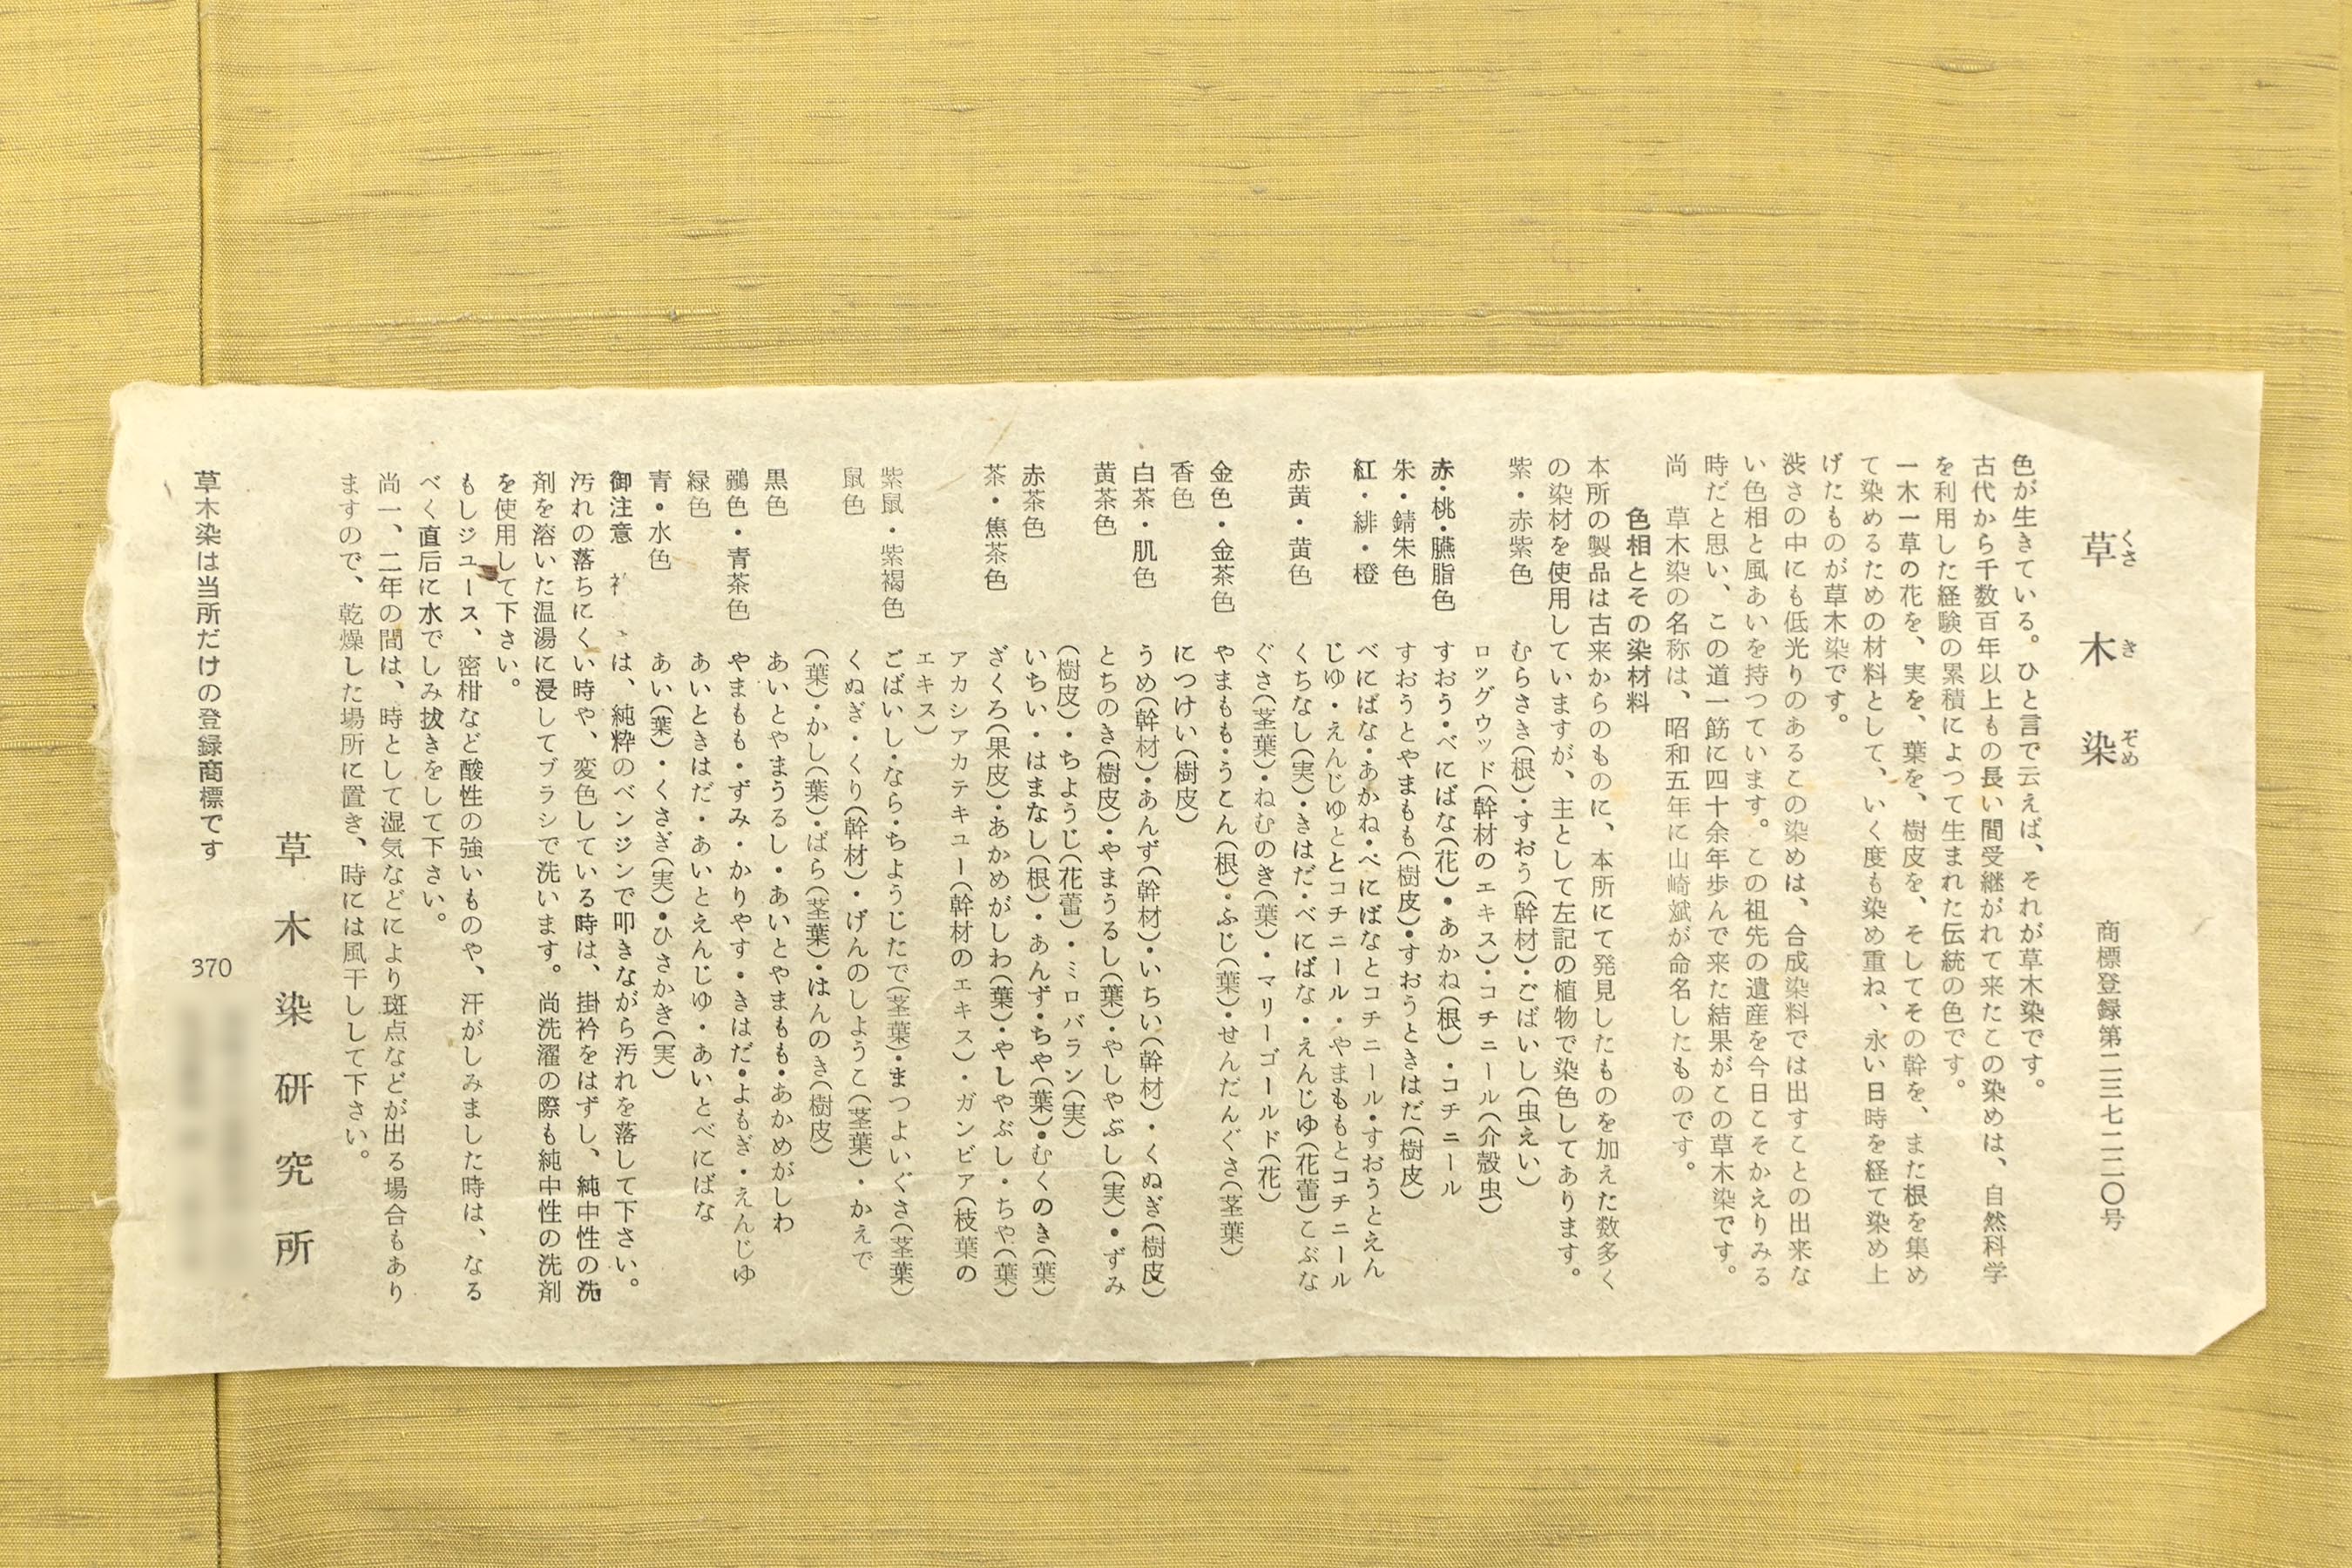 草木染
くさ き ぞめ
商標登録第二三七二二〇号
色が生きている。ひと言で云えば、それが草木染です。
古代から千数百年以上もの長い間受継がれて来たこの染めは、自然科学
を利用した経験の累積によつて生まれた伝統の色です。
一木一草の花を、実を、葉を、樹皮を、そしてその幹を、また根を集め
て染めるための材料として、いく度も染め重ね、永い日時を経て染め上
げたものが草木染です。
渋さの中にも低光りのあるこの染めは、合成染料では出すことの出来な
い色相と風あいを持つています。この祖先の遺産を今日こそかえりみる
時だと思い、この道一筋に四十余年歩んで来た結果がこの草木染です。
尚 草木染の名称は、昭和五年に山崎斌が命名したものです。
色相とその染材料
本所の製品は古来からのものに、本所にて発見したものを加えた数多く
の染材を使用していますが、主として左記の植物で染色してあります。
紫・赤紫色 むらさき(根)・すおう(幹材)・ごばいし(虫えい)
ロッグウッド(幹材のエキス)・コチニール(介殻虫)
赤・桃・臙脂色 すおう・べにばな(花)・あかね(根)・コチニール
朱・錆朱色 すおうとやまもも(樹皮)・すおうときはだ(樹皮)
紅・緋・橙 べにばな・あかね・べにばなとコチニール・すおうとえん
じゆ・えんじゆととコチニール・やまももとコチニール
赤黄・黄色 くちなし(実)・きはだ・べにばな・えんじゆ(花蕾)こぶな
ぐさ(茎葉)・ねむのき(葉)・マリーゴールド(花)
金色・金茶色 やまもも・うこん(根)・ふじ(葉)・せんだんぐさ(茎葉)
香色 につけい(樹皮)
白茶・肌色 うめ(幹材)・あんず(幹材)・いちい(幹材)・くぬぎ(樹皮)
黄茶色 とちのき(樹皮)・やまうるし(葉)・やしやぶし(実)・ずみ
(樹皮)・ちようじ(花蕾)・ミロバラン(実)
赤茶色 いちい・はまなし(根)・あんず・ちや(葉)・むくのき(葉)
茶・焦茶色 ざくろ(果皮)・あかめがしわ(葉)・やしやぶし・ちや(葉)
アカシアカテキユー(幹材のエキス)・ガンビア(枝葉の
エキス)
紫鼠・紫褐色 ごばいし・なら・ちようじたで(茎葉)・まつよいぐさ(茎葉)
鼠色 くぬぎ・くり(幹材)・げんのしようこ(茎葉)・かえで
(葉)・かし(葉)・ばら(茎葉)・はんのき(樹皮)
黒色 あいとやまうるし・あいとやまもも・あかめがしわ
鶸色・青茶色 やまもも・ずみ・かりやす・きはだ・よもぎ・えんじゆ
緑色 あいときはだ・あいとえんじゆ・あいとべにばな
青・水色 あい(葉)・くさぎ(実)・ひさかき(実)
御注意 は、純粋のベンジンで叩きながら汚れを落して下さい。
汚れの落ちにくい時や、変色している時は、掛衿をはずし、純中性の洗
剤を溶いた温湯に浸してブラシで洗います。尚洗濯の際も純中性の洗剤
を使用して下さい。
もしジュース、密柑など酸性の強いものや、汗がしみました時は、なる
べく直后に水でしみ抜きをして下さい。
尚一、二年の間は、時として湿気などにより斑点などが出る場合もあり
ますので、乾燥した場所に置き、時には風干しして下さい。
草木染研究所
草木染は当所だけの登録商標です
370